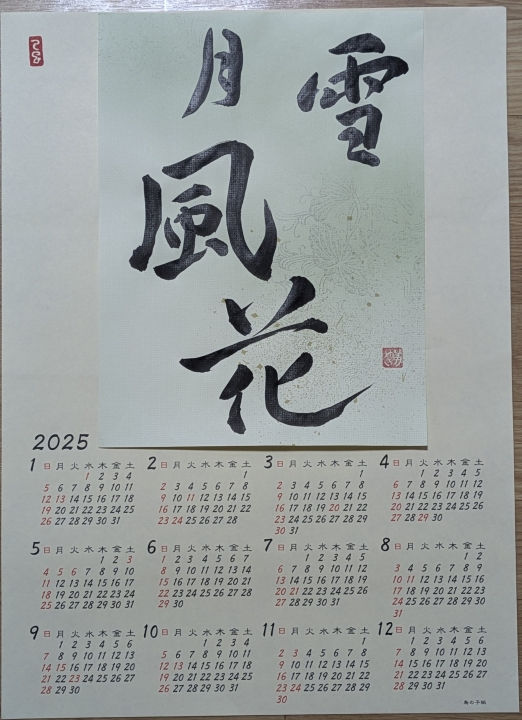 雪
月
風
花
2025
1 日 月 火 水 木 金 土
1 2 3 4
5 6 7 8 9 10 11
12 13 14 15 16 17 18
19 20 21 22 23 24 25
26 27 28 29 30 31
2 日 月 火 水 木 金 土
1
2 3 4 5 6 7 8
9 10 11 12 13 14 15
16 17 18 19 20 21 22
23 24 25 26 27 28
3 日 月 火 水 木 金 土
1
2 3 4 5 6 7 8
9 10 11 12 13 14 15
16 17 18 19 20 21 22
23 24 25 26 27 28 29
30 31
4 日 月 火 水 木 金 土
1 2 3 4 5
6 7 8 9 10 11 12
13 14 15 16 17 18 19
20 21 22 23 24 25 26
27 28 29 30
5 日 月 火 水 木 金 土
1 2 3
4 5 6 7 8 9 10
11 12 13 14 15 16 17
18 19 20 21 22 23 24
25 26 27 28 29 30 31
6 日 月 火 水 木 金 土
1 2 3 4 5 6 7
8 9 10 11 12 13 14
15 16 17 18 19 20 21
22 23 24 25 26 27 28
29 30
7 日 月 火 水 木 金 土
1 2 3 4 5
6 7 8 9 10 11 12
13 14 15 16 17 18 19
20 21 22 23 24 25 26
27 28 29 30 31
8 日 月 火 水 木 金 土
1 2
3 4 5 6 7 8 9
10 11 12 13 14 15 16
17 18 19 20 21 22 23
24 25 26 27 28 29 30
31
9 日 月 火 水 木 金 土
1 2 3 4 5 6
7 8 9 10 11 12 13
14 15 16 17 18 19 20
21 22 23 24 25 26 27
28 29 30
10 日 月 火 水 木 金 土
1 2 3 4
5 6 7 8 9 10 11
12 13 14 15 16 17 18
19 20 21 22 23 24 25
26 27 28 29 30 31
11 日 月 火 水 木 金 土
1
2 3 4 5 6 7 8
9 10 11 12 13 14 15
16 17 18 19 20 21 22
23 24 25 26 27 28 29
30
12 日 月 火 水 木 金 土
1 2 3 4 5 6
7 8 9 10 11 12 13
14 15 16 17 18 19 20
21 22 23 24 25 26 27
28 29 30 31